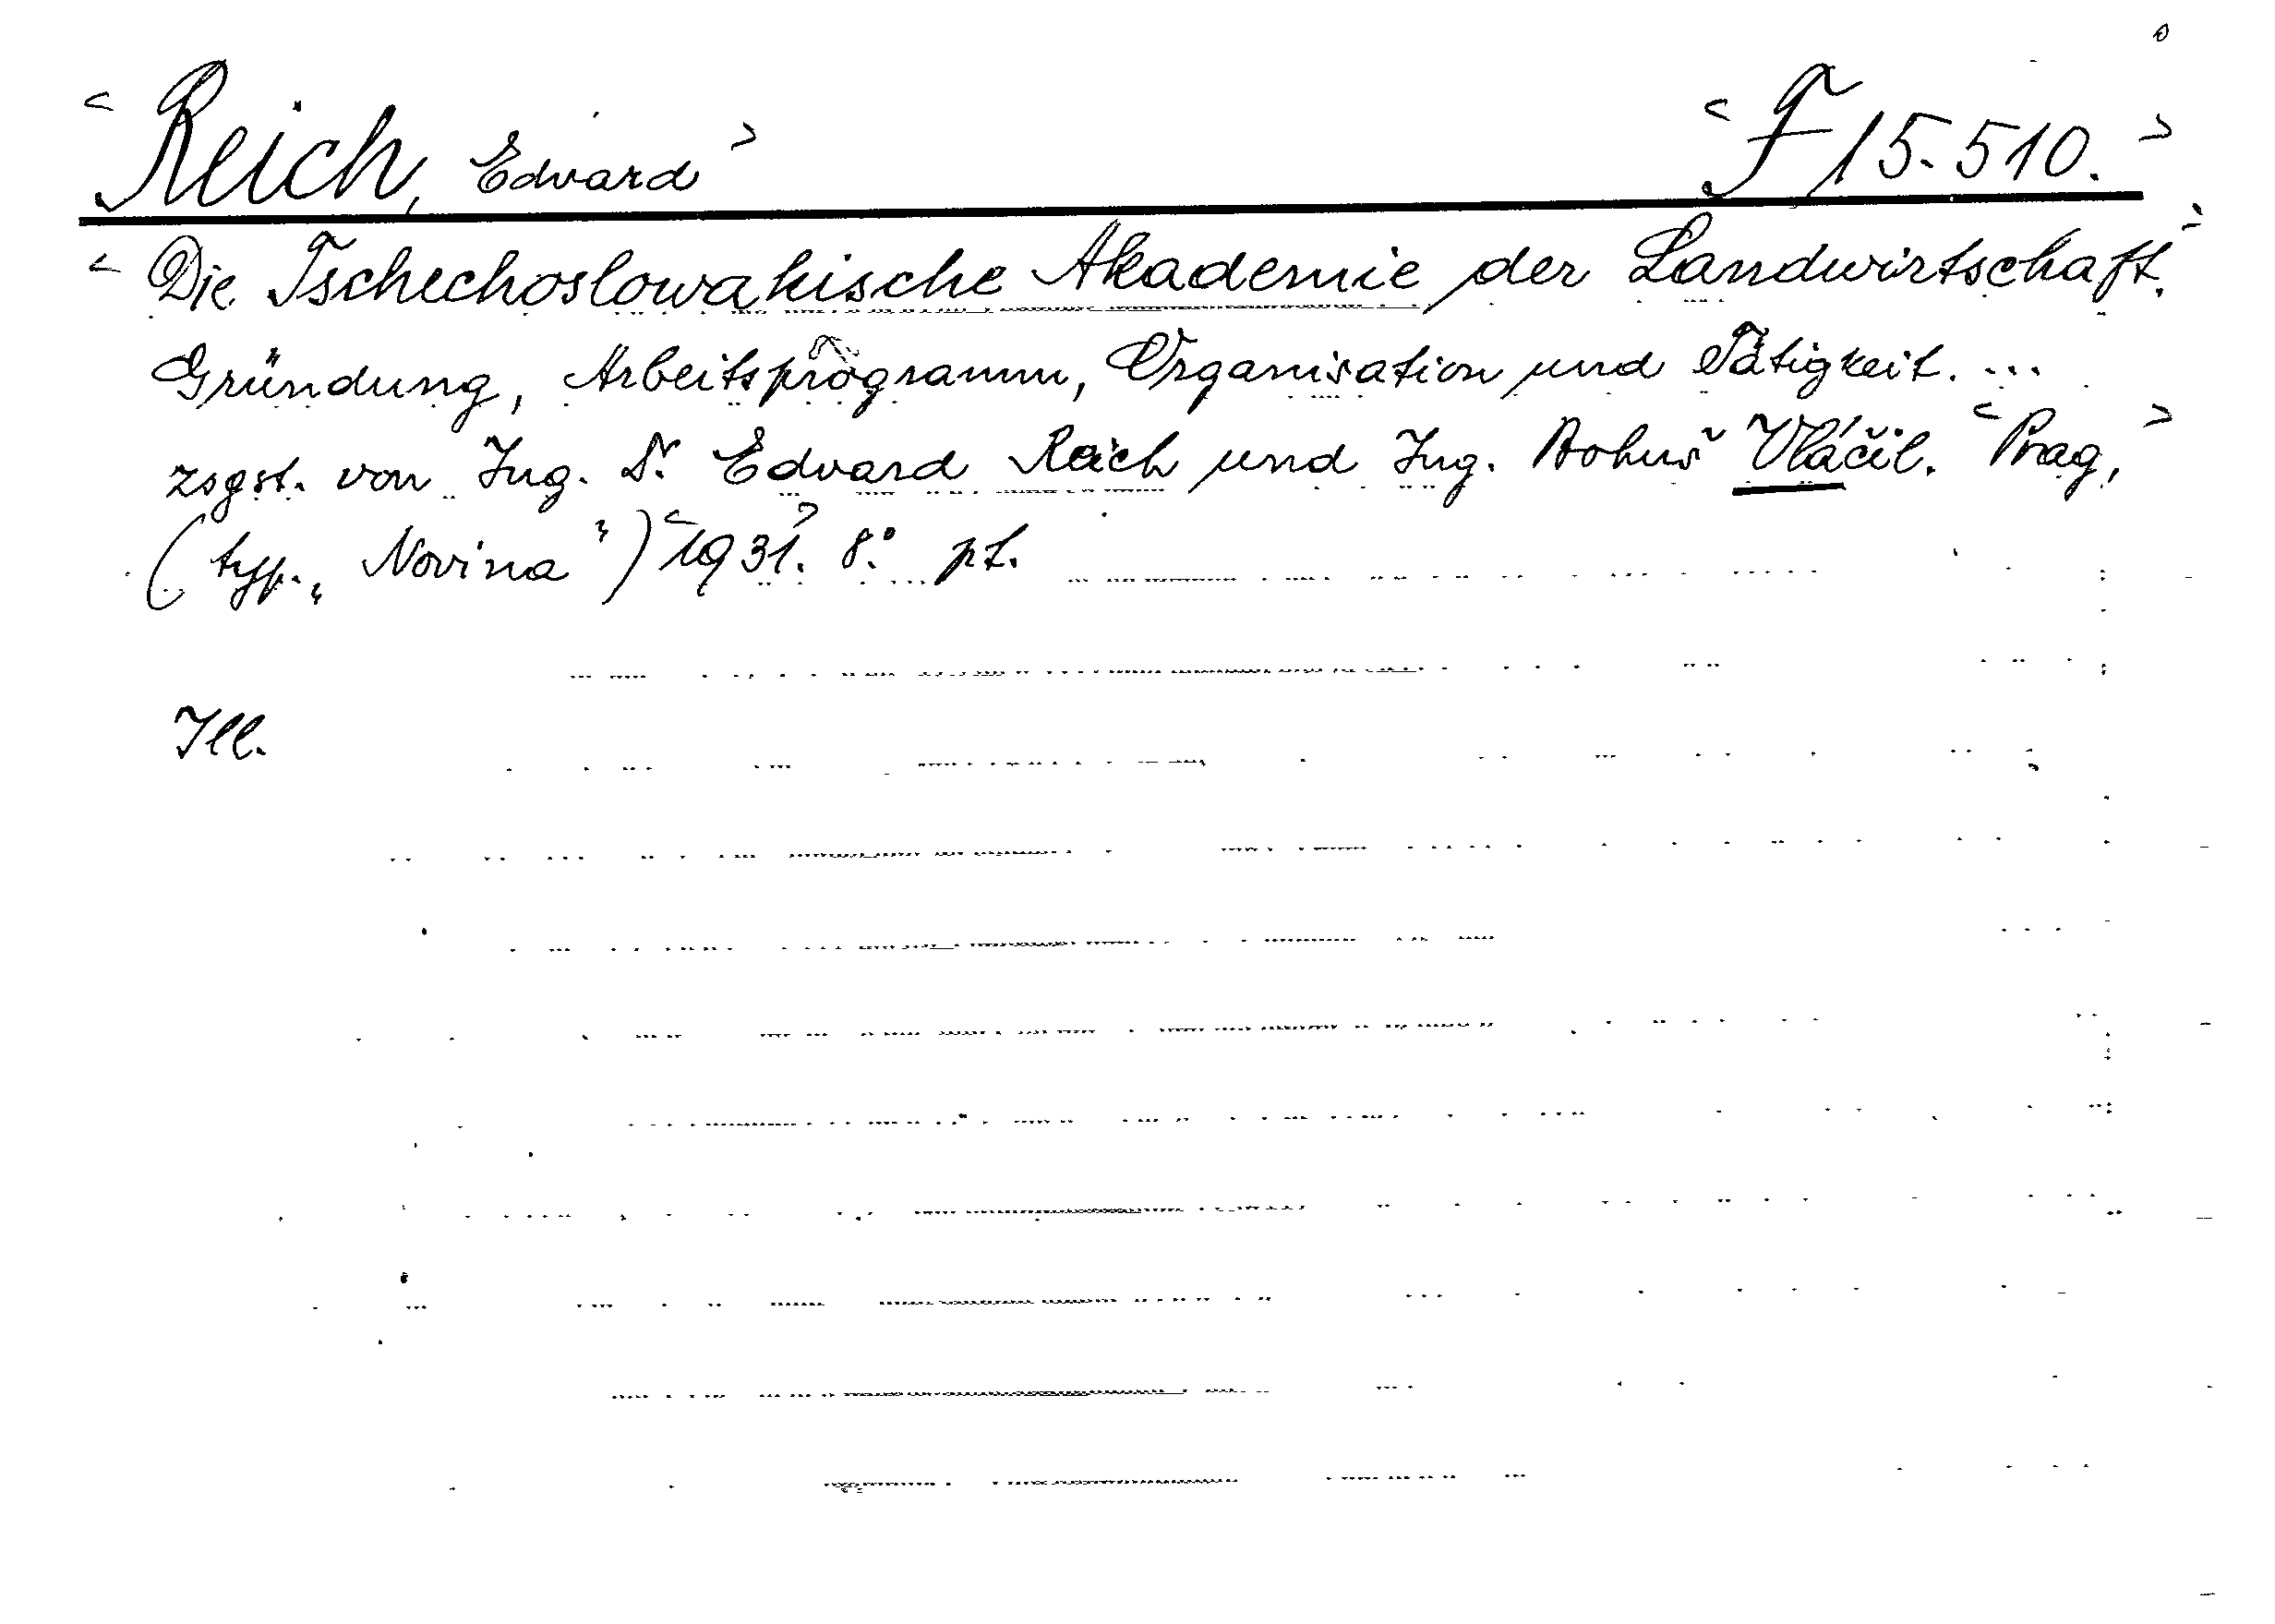 <Reich, Edvard> <F 15.510.>
<Die Tschechoslowakische Akademie der Landwirtschaft.>
Gründung, Arbeitsprogramm, Organisation und Tätigkeit. ...
zsgst. von Ing. Dr. Edvard Reich und Ing. Bohuš Vláčil. <Prag,>
(typ. „Novina") <1931.> 8.° pt.
Ill.